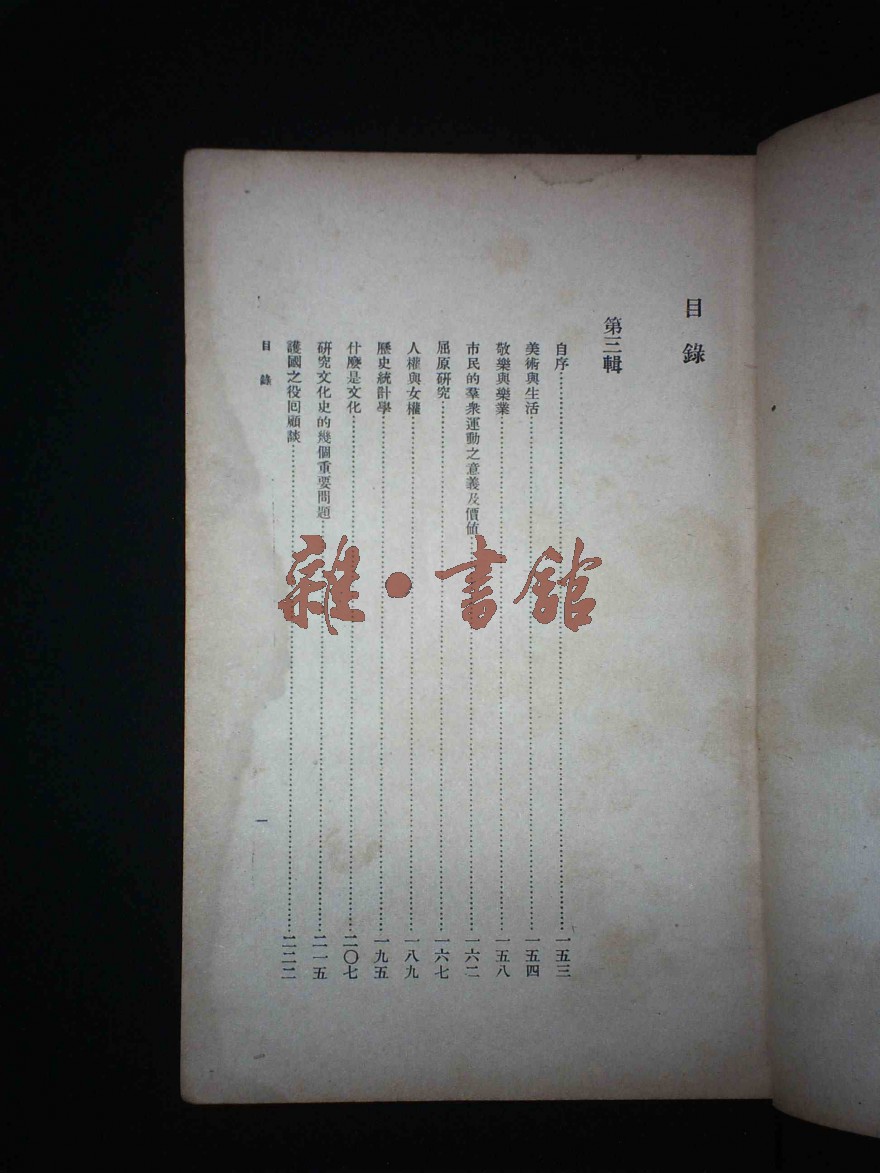 目錄
第三輯
自序……一五三
美術與生活……一五四
敬樂與樂業……一五八
市民的羣衆運動之意義及價値……一六二
屈原研究……一六七
人權與女權……一八九
歷史統計學……一九五
什麼是文化……二〇七
研究文化史的幾個重要問題……二一五
護國之役回顧談……二二二
目錄
一
雜·書館